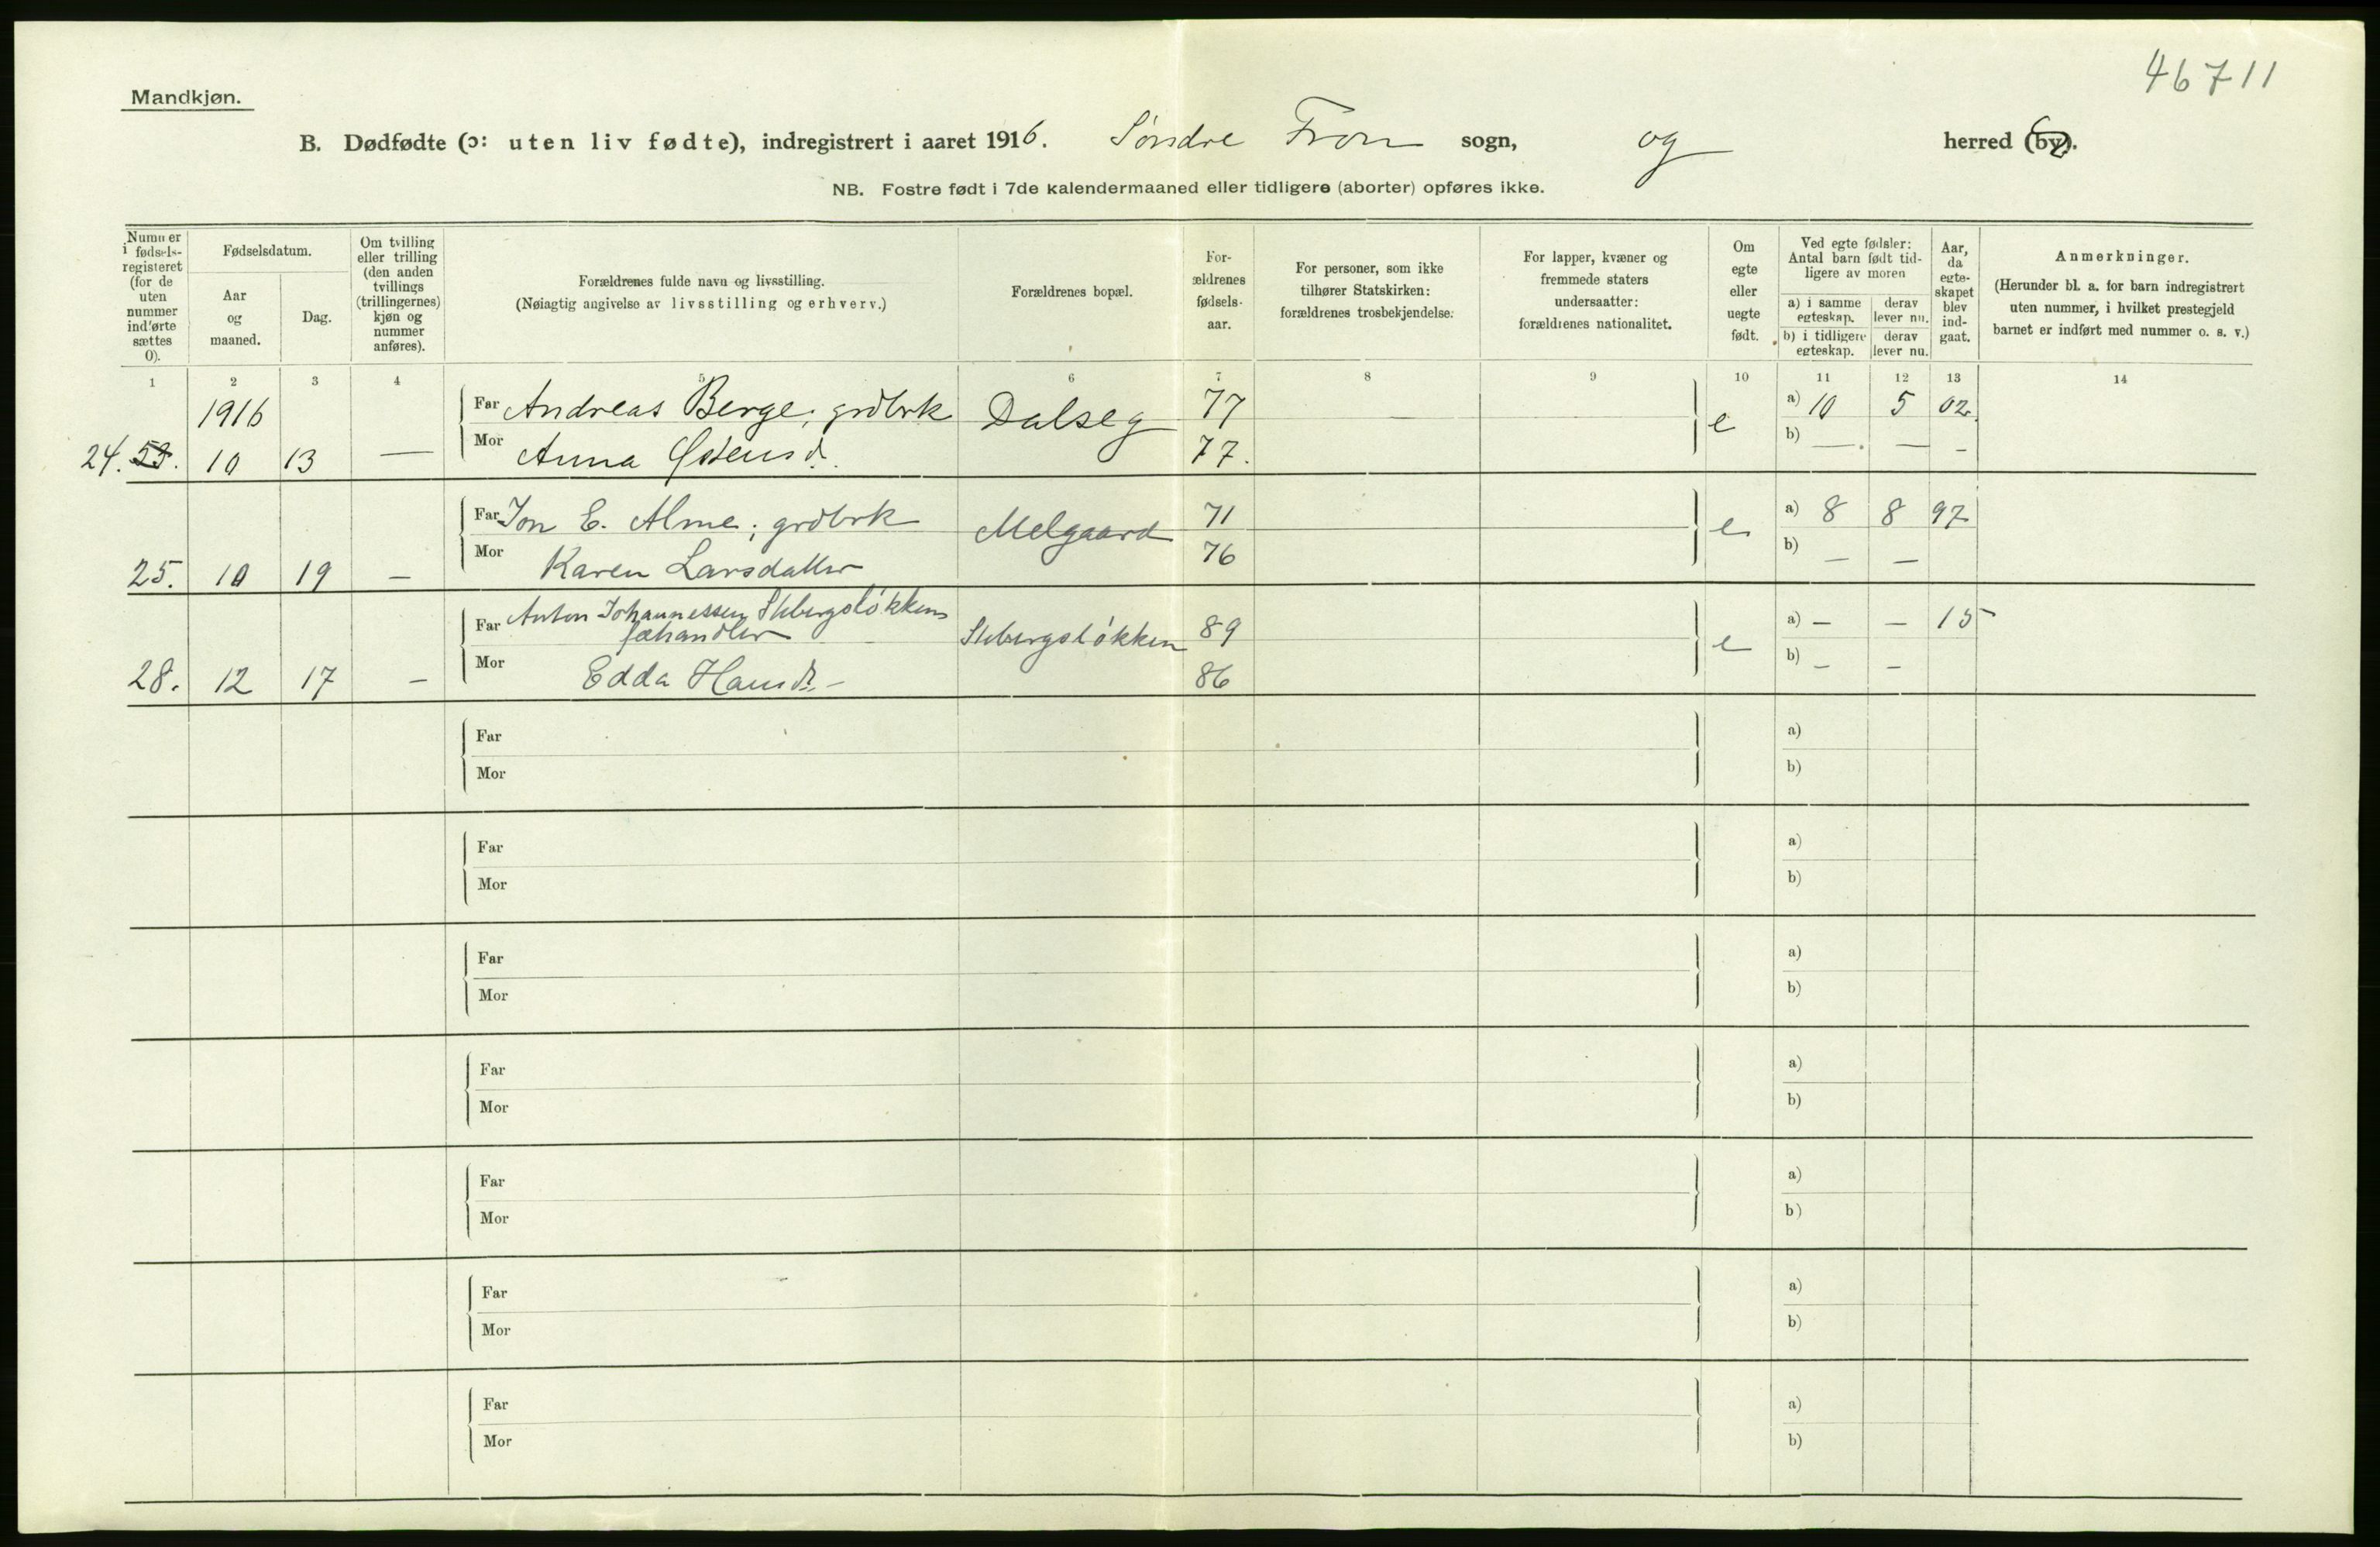 46711
Mandkjøn.
B. Dødfødte (ɔ: uten liv fødte), indregistrert i aaret 1916. Søndre Fron sogn, og herred (by).
NB. Fostre født i 7de kalendermaaned eller tidligere (aborter) opføres ikke.
Nummer i fødsels-registeret (for de uten nummer indførte sættes 0).
Fødselsdatum.
Aar og maaned.
Dag.
Om tvilling eller trilling (den anden tvillings (trillingernes) kjøn og nummer anføres).
Forældrenes fulde navn og livsstilling.
(Nøiagtig angivelse av livsstilling og erhverv.)
Forældrenes bopæl.
For-ældrenes fødsels-aar.
For personer, som ikke tilhører Statskirken: forældrenes trosbekjendelse.
For lapper, kvæner og fremmede staters undersaatter: forældrenes nationalitet.
Om egte eller uegte født.
Ved egte fødsler: Antal barn født tid-ligere av moren
a) i samme egteskap.
derav lever nu.
b) i tidligere egteskap.
derav lever nu.
Aar, da egte-skapet blev ind-gaat.
Anmerkninger.
(Herunder bl. a. for barn indregistrert uten nummer, i hvilket prestegjeld barnet er indført med nummer o. s. v.)
1 2 3 4 5 6 7 8 9 10 11 12 13 14
1916 Far Andreas Berge, grdbrk Dalseg 77 — — e a) 10 5 02
24. 53. 10 13 — Mor Anna Østensd. 77. b) — — –
Far Jon E. Alme; grdbrk Melgaard 71 e a) 8 8 97
25. 10 19 – Mor Karen Larsdatter 76 b) — —
Far Anton Johannessen Stebergsløkken
fæhandler Stebergsløkken 89 e a) – – 15
28. 12 17 – Mor Edda Hansd. – 86 b) – –
Far a)
Mor b)
Far a)
Mor b)
Far a)
Mor b)
Far a)
Mor b)
Far a)
Mor b)
Far a)
Mor b)
Far a)
Mor b)